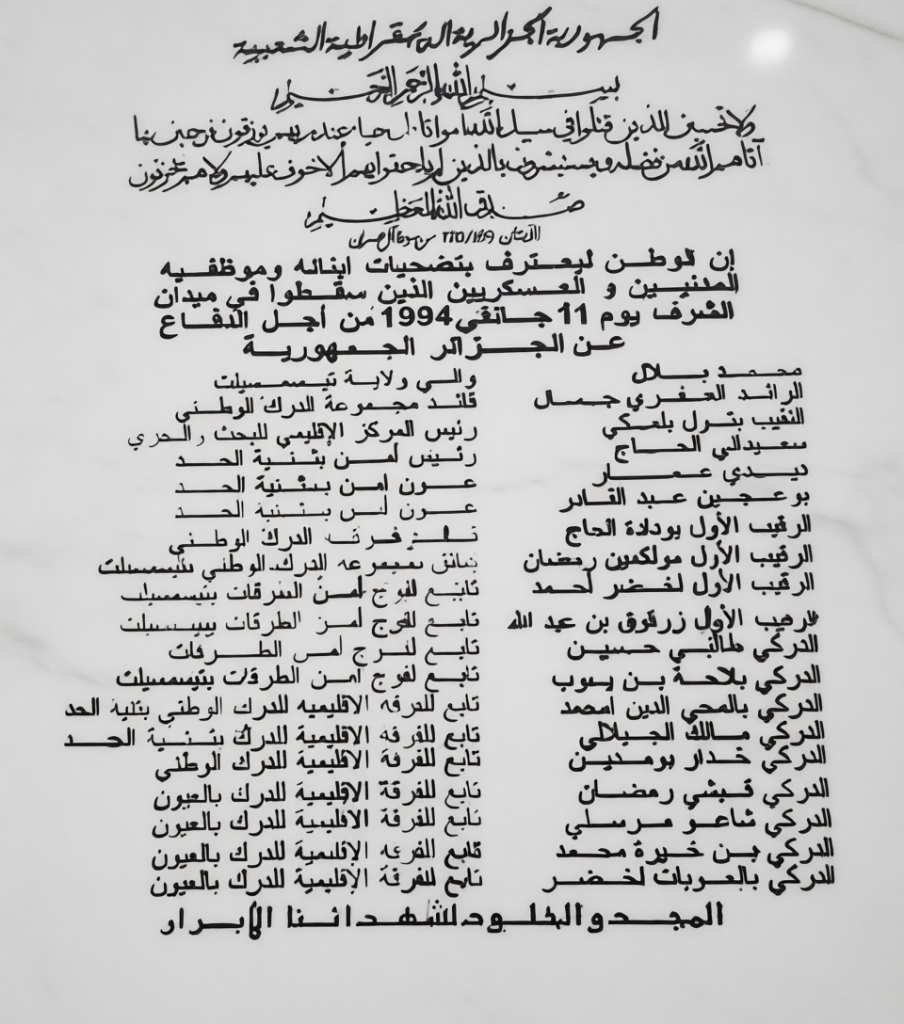 الجمهورية الجزائرية الديمقراطية الشعبية
بسم الله الرحمن الرحيم
ولا تحسبن الذين قتلوا في سبيل الله أمواتا بل أحياء عند ربهم يرزقون فرحين بما
آتاهم الله من فضله ويستبشرون بالذين لم يلحقوا بهم ألا خوف عليهم ولا هم يحزنون
صدق الله العظيم
من سورة آل عمران
إن الوطن ليعترف بتضحيات ابنائه وموظفيه
المدنيين و العسكريين الذين سقطوا في ميدان
الشرف يوم 11 جانفي 1994 من أجل الدفاع
عن الجزائر الجمهورية
محمد بلال والي ولاية تيسمسيلت
الرائد العفري جمال قائد مجموعة الدرك الوطني
النقيب بترل بلعكي رئيس المركز الإقليمي للبحث و التحري
سعيدالي الحاج رئيس أمن بثنية الحد
ديدي عمار عون امن بثنية الحد
بوعجين عبد القادر عون بثنية الحد
الرقيب الأول بودادة الحاج الدرك الوطني
الرقيب الأول مولكمين رمضان الدرك الوطني
الرقيب الأول لخضر أحمد تابع لفوج أمن الطرقات بتيسمسيلت
الرقيب الأول زرقوق بن عبد الله تابع لفوج أمن الطرقات بتيسمسيلت
الدركي طالبي حسين تابع لفوج أمن الطرقات
الدركي بلاحة بن يوب تابع لفوج امن الطرقات بتيسمسيلت
الدركي بالمحي الدين امحمد تابع للفرقة الاقليمية للدرك الوطني بثنية الحد
الدركي مالك الجيلالي تابع للفرقة الاقليمية للدرك بثنية الحد
الدركي خدار بومدين تابع للفرقة الاقليمية للدرك الوطني
الدركي قبشي رمضان تابع للفرقة الاقليمية للدرك بالعيون
الدركي شاعو مرسلي تابع للفرقة الاقليمية للدرك بالعيون
الدركي بن خيرة محمد تابع للفرقة الإقليمية للدرك بالعيون
الدركي بالعربات لخضر تابع للفرقة الإقليمية للدرك بالعيون
المجد و الخلود لشهدائنا الأبرار